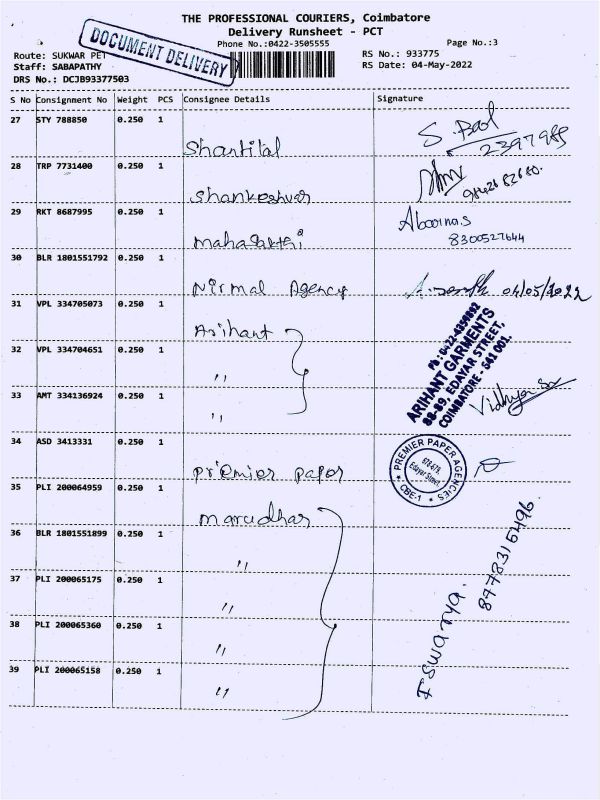 THE PROFESSIONAL COURIERS, Coimbatore
Delivery Runsheet - PCT
DOCUMENT DELIVERY
Phone No.:0422-3505555
Page No.:3
Route: SUKWAR PET
RS No.: 933775
Staff: SABAPATHY
RS Date: 04-May-2022
DRS No.: DCJB93377503
S No Consignment No Weight PCS Consignee Details Signature
27 STY 788850 0.250 1
Shantilal
S. Bal
2397989
28 TRP 7731400 0.250 1
Shankeshwar
29 RKT 8687995 0.250 1
Mahasakthi
8300527644
30 BLR 1801551792 0.250 1
Nirmal Agency
04/05/2022
31 VPL 334705073 0.250 1
Arihant
32 VPL 334704651 0.250 1
"
33 AMT 334136924 0.250 1
"
ARIHANT GARMENTS
88-89, EDAYAR STREET,
COIMBATORE - 641 001.
Vidhya
34 ASD 3413331 0.250 1
Premier paper
PREMIER PAPER AGENCIES
Edayar Street,
CBE-1
35 PLI 200064959 0.250 1
Marudhar
36 BLR 1801551899 0.250 1
"
37 PLI 200065175 0.250 1
"
38 PLI 200065360 0.250 1
"
39 PLI 200065158 0.250 1
"
Eswarya.
8778315496.